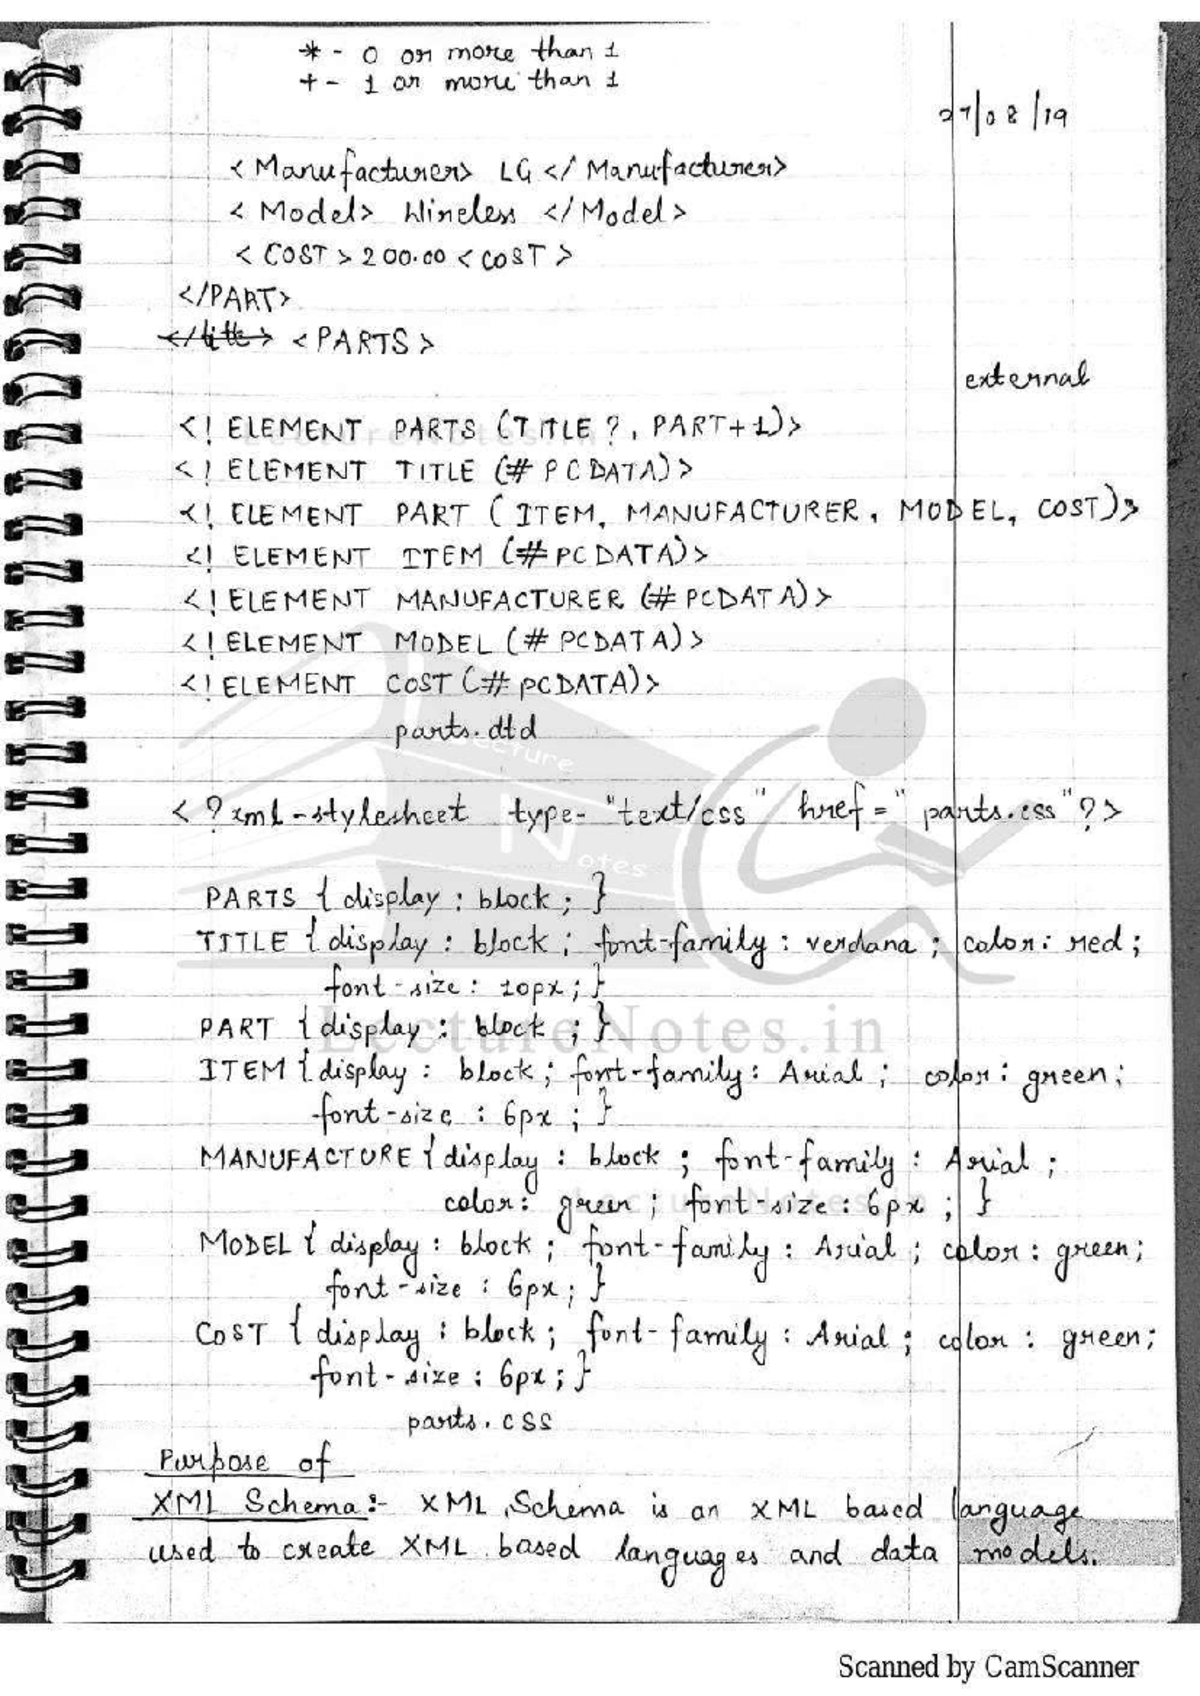 * - 0 or more than 1
+ - 1 or more than 1
27/08/19
<Manufacturer> LG </Manufacturer>
<Model> Wireless </Model>
<COST> 200.00 <COST>
</PART>
</title> <PARTS>
external
<! ELEMENT PARTS (TITLE ?, PART+1)>
<! ELEMENT TITLE (# PCDATA)>
<! ELEMENT PART (ITEM, MANUFACTURER, MODEL, COST)>
<! ELEMENT ITEM (#PCDATA)>
<! ELEMENT MANUFACTURER (# PCDATA)>
<! ELEMENT MODEL (# PCDATA)>
<! ELEMENT COST (# PCDATA)>
parts.dtd
Lecture
Notes
<?xml-stylesheet type- "text/css" href=" parts.css"?>
PARTS { display : block ; }
TITLE { display : block ; font-family : verdana ; color : red ;
font-size : 10px ; }
LectureNotes.in
PART { display : block ; }
ITEM { display : block ; font-family : Arial ; color : green ;
font-size : 6px ; }
MANUFACTURE { display : block ; font-family : Arial ;
color : green ; font-size : 6px ; }
LectureNotes.in
MODEL { display : block ; font-family : Arial ; color : green ;
font-size : 6px ; }
COST { display : block ; font-family : Arial ; color : green ;
font-size : 6px ; }
parts.css
Purpose of
XML Schema :- XML Schema is an XML based language
used to create XML based languages and data models.
Scanned by CamScanner